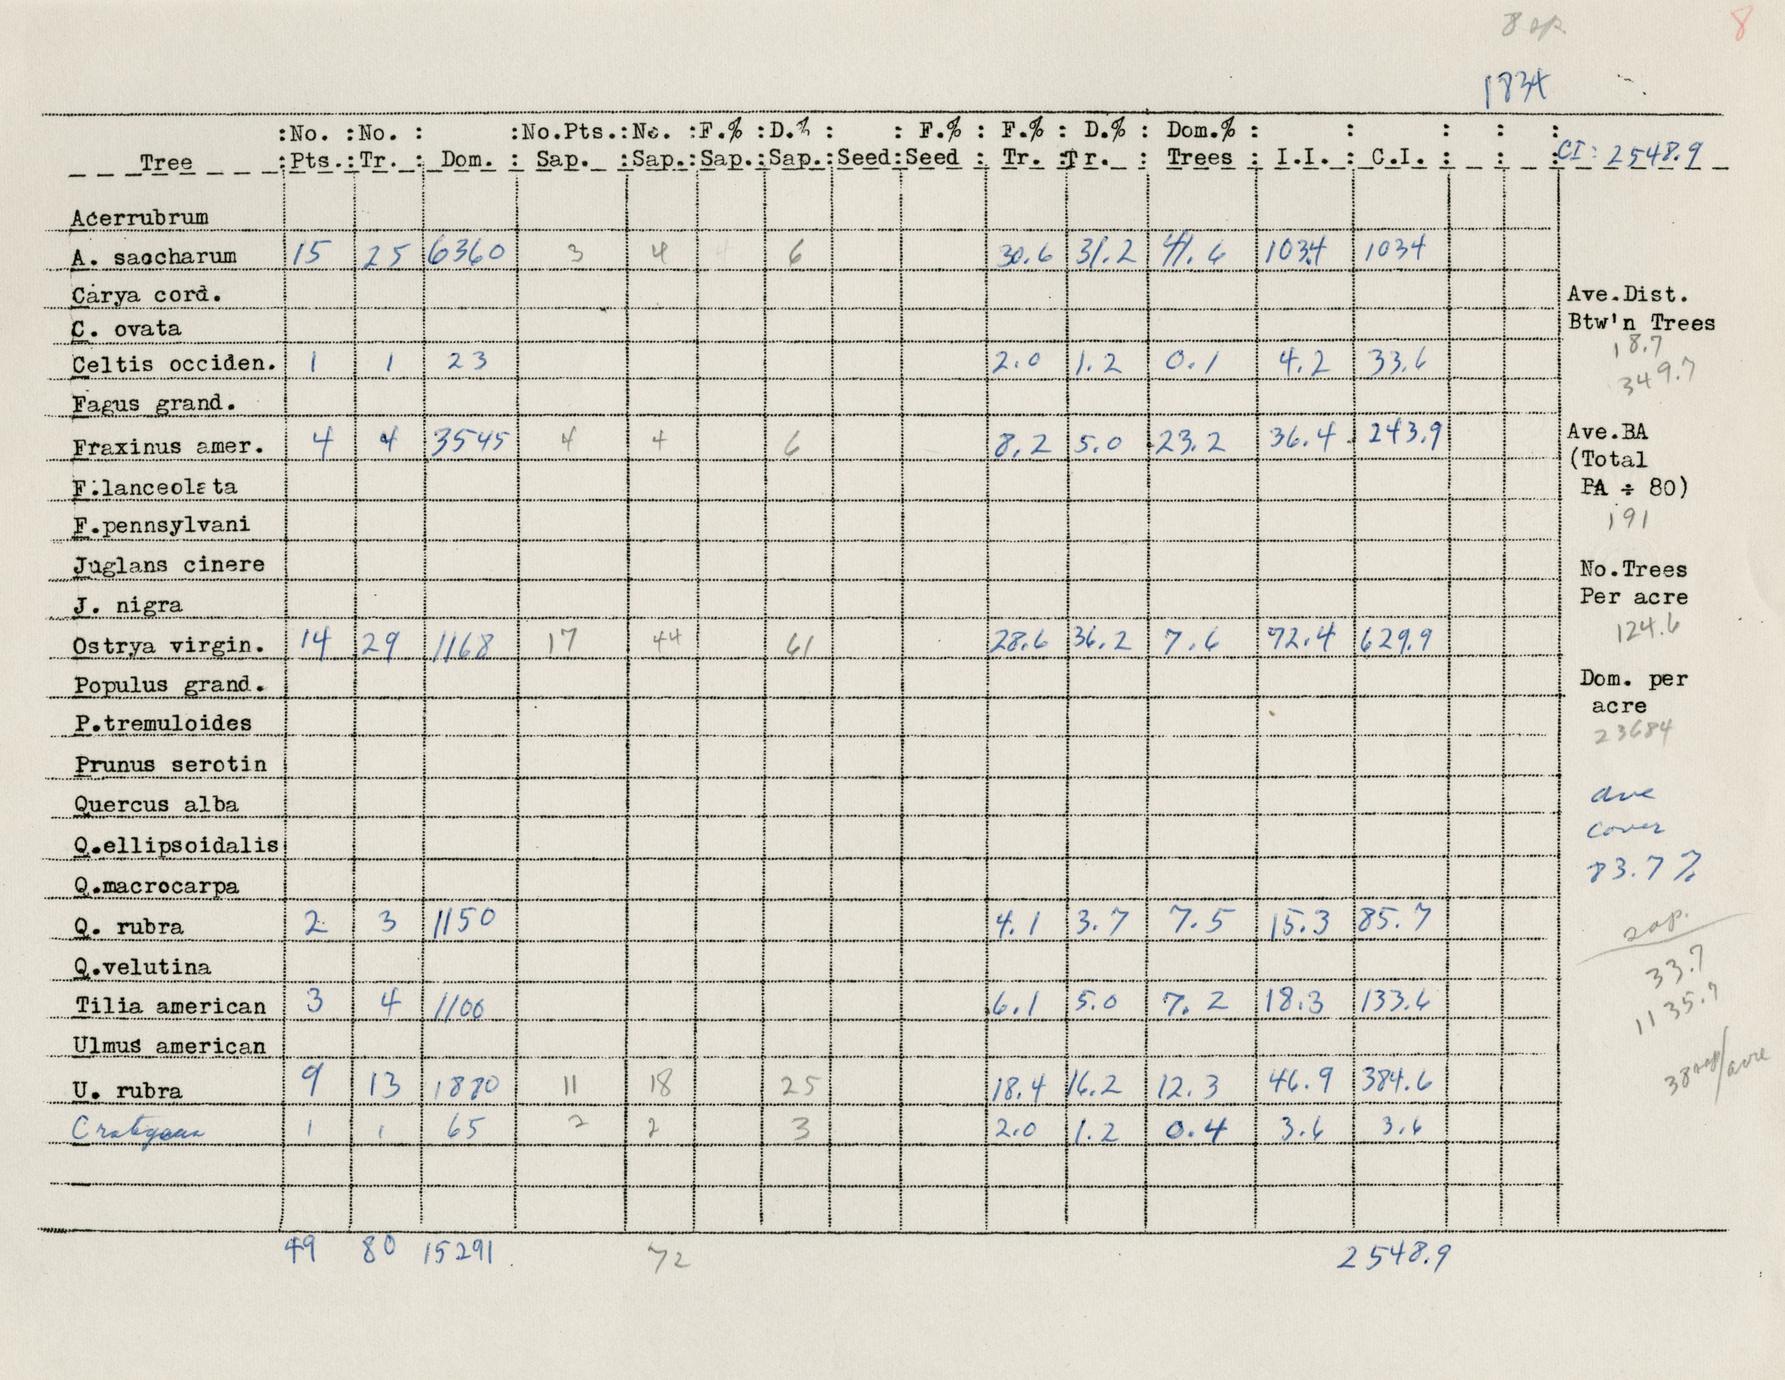 8 sp. 8
1834
:No. :No. : :No.Pts.:No. :F.% :D.% : : F.% : F.% : D.% : Dom.% : : : : :
Tree :Pts.:Tr. : Dom. : Sap. :Sap.:Sap.:Sap.:Seed:Seed : Tr. :Tr. : Trees : I.I. : C.I. : : : CI: 2548.9
Acerrubrum
A. saccharum 15 25 6360 3 4 6 30.6 31.2 41.6 103.4 1034
Carya cord.
C. ovata
Celtis occiden. 1 1 23 2.0 1.2 0.1 4.2 33.6
Fagus grand.
Fraxinus amer. 4 4 3545 4 4 6 8.2 5.0 23.2 36.4 243.9
F.lanceolata
F.pennsylvani
Juglans cinere
J. nigra
Ostrya virgin. 14 29 1168 17 44 61 28.6 36.2 7.6 72.4 629.9
Populus grand.
P.tremuloides
Prunus serotin
Quercus alba
Q.ellipsoidalis
Q.macrocarpa
Q. rubra 2 3 1150 4.1 3.7 7.5 15.3 85.7
Q.velutina
Tilia american 3 4 1100 6.1 5.0 7.2 18.3 133.6
Ulmus american
U. rubra 9 13 1880 11 18 25 18.4 16.2 12.3 46.9 384.6
1 1 65 2 2 3 2.0 1.2 0.4 3.6 3.6
49 80 15291 72 2548.9
Ave.Dist.
Btw'n Trees
18.7
349.7
Ave.BA
(Total
BA ÷ 80)
191
No.Trees
Per acre
124.6
Dom. per
acre
23684
ave
cover
83.7 %
sap.
33.7
1135.7
38 sap/acre